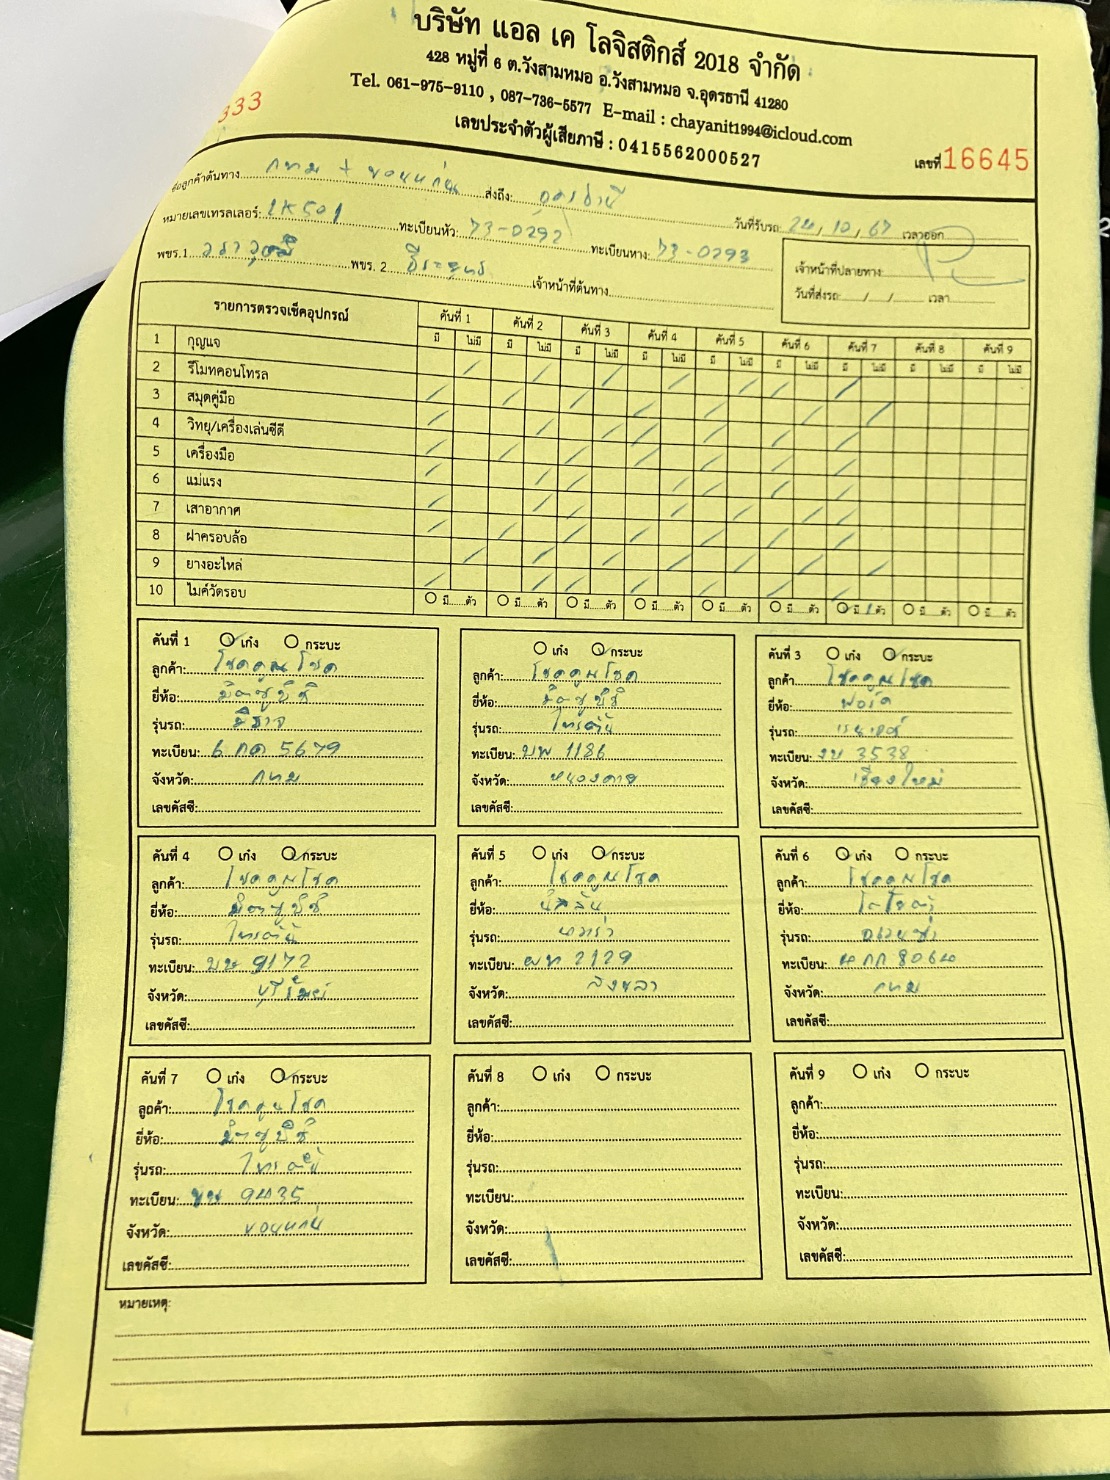 บริษัท แอล เค โลจิสติกส์ 2018 จำกัด
428 หมู่ที่ 6 ต.วังสามหมอ อ.วังสามหมอ จ.อุดรธานี 41280
Tel. 061-975-9110 , 087-736-5577 E-mail : chayanit1994@icloud.com
เลขประจำตัวผู้เสียภาษี : 0415562000527
333
เลขที่ 16645
ชื่อลูกค้าต้นทาง กทม + ขอนแก่น ส่งถึง: อุดรธานี วันที่รับรถ 24, 10, 67 เวลาออก
หมายเลขเทรลเลอร์: LK501 ทะเบียนหัว: 73-0292 ทะเบียนหาง: 73-0293
พขร.1 วราวุฒิ พขร. 2 ธีระยุทธ เจ้าหน้าที่ต้นทาง
เจ้าหน้าที่ปลายทาง
วันที่ส่งรถ / / เวลา
รายการตรวจเช็คอุปกรณ์ คันที่ 1 คันที่ 2 คันที่ 3 คันที่ 4 คันที่ 5 คันที่ 6 คันที่ 7 คันที่ 8 คันที่ 9
มี ไม่มี มี ไม่มี มี ไม่มี มี ไม่มี มี ไม่มี มี ไม่มี มี ไม่มี มี ไม่มี มี ไม่มี
1 กุญแจ
2 รีโมทคอนโทรล
3 สมุดคู่มือ
4 วิทยุ/เครื่องเล่นซีดี
5 เครื่องมือ
6 แม่แรง
7 เสาอากาศ
8 ฝาครอบล้อ
9 ยางอะไหล่
10 ไมค์วัดรอบ มี......ตัว มี......ตัว มี......ตัว มี......ตัว มี......ตัว มี......ตัว มี 1 ตัว มี......ตัว มี......ตัว
คันที่ 1 เก๋ง กระบะ
ลูกค้า: โชคคูณโชค
ยี่ห้อ: มิตซูบิชิ
รุ่นรถ: มิราจ
ทะเบียน: 6 กด 5679
จังหวัด: กทม
เลขคัสซี:
เก๋ง กระบะ
ลูกค้า: โชคคูณโชค
ยี่ห้อ: มิตซูบิชิ
รุ่นรถ: ไทรตัน
ทะเบียน: บพ 1186
จังหวัด: หนองคาย
เลขคัสซี:
คันที่ 3 เก๋ง กระบะ
ลูกค้า: โชคคูณโชค
ยี่ห้อ: ฟอร์ด
รุ่นรถ: เรนเจอร์
ทะเบียน: งบ 3538
จังหวัด: เชียงใหม่
เลขคัสซี:
คันที่ 4 เก๋ง กระบะ
ลูกค้า: โชคคูณโชค
ยี่ห้อ: มิตซูบิชิ
รุ่นรถ: ไทรตัน
ทะเบียน: บษ 9172
จังหวัด: บุรีรัมย์
เลขคัสซี:
คันที่ 5 เก๋ง กระบะ
ลูกค้า: โชคคูณโชค
ยี่ห้อ: นิสสัน
รุ่นรถ: นาวาร่า
ทะเบียน: ผท 2129
จังหวัด: สงขลา
เลขคัสซี:
คันที่ 6 เก๋ง กระบะ
ลูกค้า: โชคคูณโชค
ยี่ห้อ: โตโยต้า
รุ่นรถ: อแวนซ่า
ทะเบียน: 4 กก 8064
จังหวัด: กทม
เลขคัสซี:
คันที่ 7 เก๋ง กระบะ
ลูกค้า: โชคคูณโชค
ยี่ห้อ: มิตซูบิชิ
รุ่นรถ: ไทรตัน
ทะเบียน: ขน 9435
จังหวัด: ขอนแก่น
เลขคัสซี:
คันที่ 8 เก๋ง กระบะ
ลูกค้า:
ยี่ห้อ:
รุ่นรถ:
ทะเบียน:
จังหวัด:
เลขคัสซี:
คันที่ 9 เก๋ง กระบะ
ลูกค้า:
ยี่ห้อ:
รุ่นรถ:
ทะเบียน:
จังหวัด:
เลขคัสซี:
หมายเหตุ: